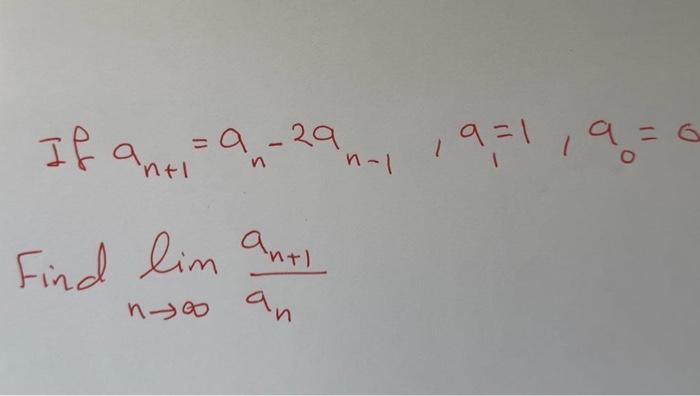 If a_{n+1} = a_n - 2a_{n-1} , a_1 = 1 , a_0 = 0
Find lim_{n→∞} \frac{a_{n+1}}{a_n}